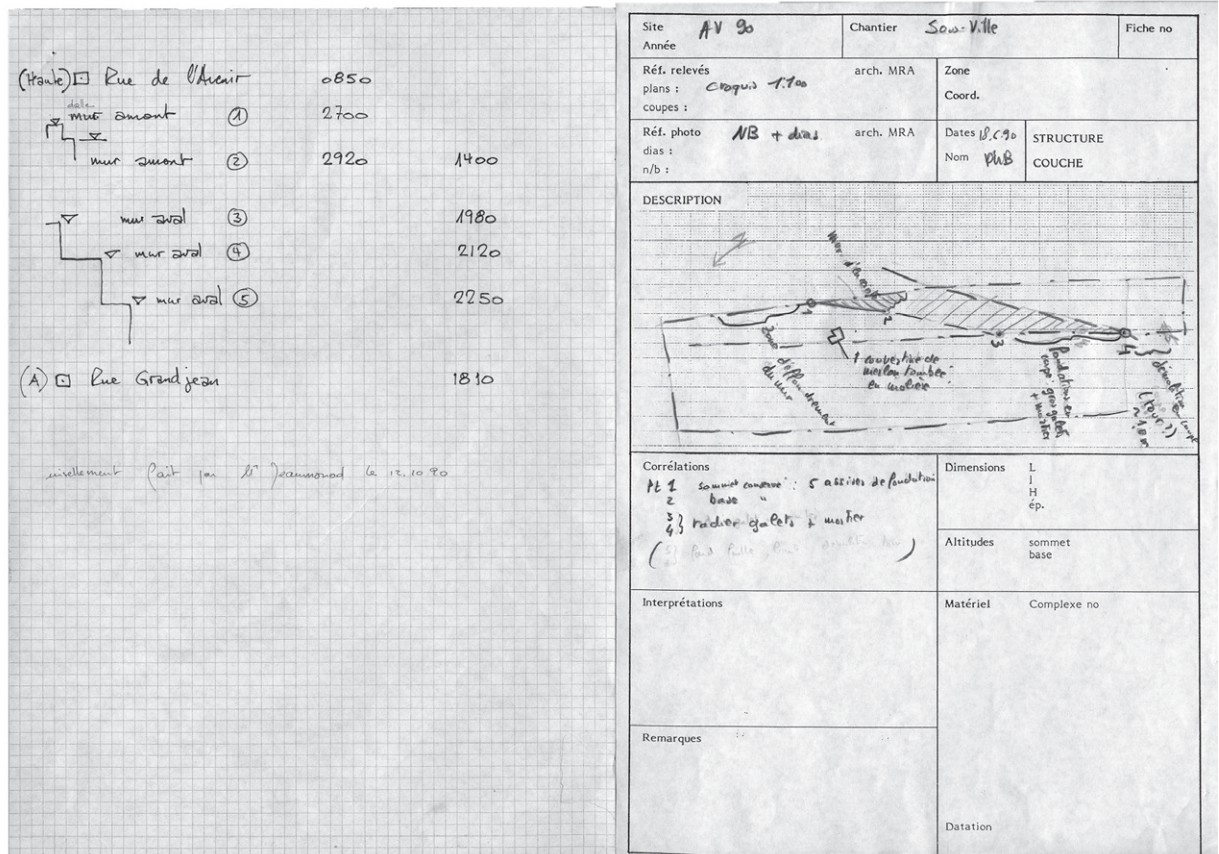 (Haute) Rue de l'Avenir 0850
dalle
mur amont 1 2700
mur amont 2 2920 1400
mur aval 3 1980
mur aval 4 2120
mur aval 5 2250
(A) Rue Grandjean 1810
nivellement fait par Mr Jeanmonod le 12.10.90
Site AV 90
Année
Chantier Sous-Ville
Fiche no
Réf. relevés arch. MRA
plans : Croquis 1:100
coupes :
Zone
Coord.
Réf. photo NB + dias arch. MRA
dias :
n/b :
Dates 18.6.90
Nom PhB
STRUCTURE
COUCHE
DESCRIPTION
Mur d'enceinte
1
2
3
4
Zone d'effondrement
du mur
1 couvertine de
merlon tombée
en molière
fondations en
coupe : gros galets
+ mortier
démolition en coupe
(tour ?)
Corrélations
Pt 1 sommet conservé : 5 assises de fondation
2 base "
3
4 } radier galets + mortier
Dimensions L
l
H
ép.
Altitudes sommet
base
Interprétations
Matériel Complexe no
Remarques
Datation